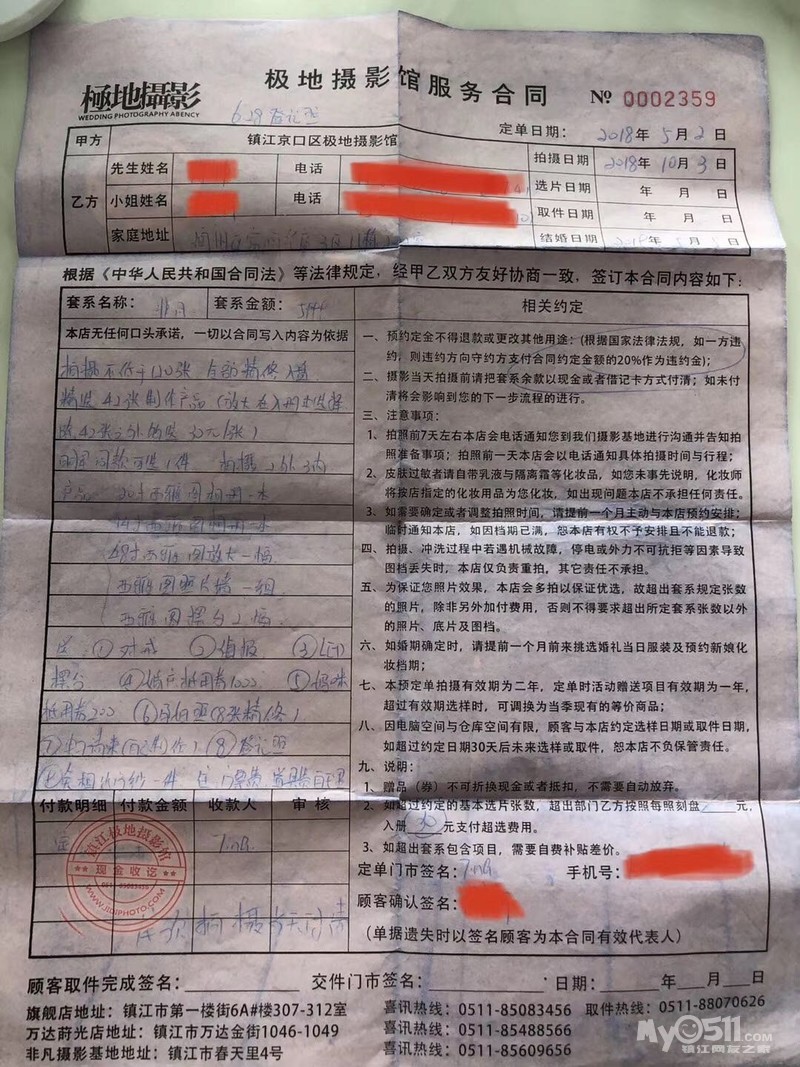 極地攝影
WEDDING PHOTOGRAPHY ABENCY
极地摄影馆服务合同 № 0002359
6.29登记照
定单日期： 2018年5月2日
甲方 镇江京口区极地摄影馆 拍摄日期 2018年10月3日
乙方 先生姓名 电话 选片日期 年 月 日
小姐姓名 电话 取件日期 年 月 日
家庭地址 结婚日期
根据《中华人民共和国合同法》等法律规定，经甲乙双方友好协商一致，签订本合同内容如下：
套系名称： 套系金额： 相关约定
本店无任何口头承诺，一切以合同写入内容为依据
拍摄不低于120张 全部精修入盘
精选42张制作产品
选42张之外的选30元/张）
拍摄2外3内
产品
48寸西丽图放大一幅
西丽图照片墙一组
西丽图摆台2幅
送①对戒②海报③LED
摆台④婚庆抵用券1000⑤
抵用券200⑥ （8张精修）
⑦电子请柬（自己制作）⑧登记照
一、预约定金不得退款或更改其他用途；（根据国家法律法规，如一方违
约，则违约方向守约方支付合同约定金额的20%作为违约金）；
二、摄影当天拍摄前请把套系余款以现金或者借记卡方式付清；如未付
清将会影响到您的下一步流程的进行。
三、注意事项：
1、拍照前7天左右本店会电话通知您到我们摄影基地进行沟通并告知拍
照准备事项；拍照前一天本店会以电话通知具体拍摄时间与行程；
2、皮肤过敏者请自带乳液与隔离霜等化妆品，如您未事先说明，化妆师
将按店指定的化妆用品为您化妆，如出现问题本店不承担任何责任。
3、如需要确定或者调整拍照时间，请提前一个月主动与本店预约安排；
临时通知本店，如因档期已满，恕本店有权不予安排且不能退款；
四、拍摄、冲洗过程中若遇机械故障，停电或外力不可抗拒等因素导致
图档丢失时，本店仅负责重拍，其它责任不承担。
五、为保证您照片效果，本店会多拍以保证优选，故超出套系规定张数
的照片，除非另外加付费用，否则不得要求超出所定套系张数以外
的照片、底片及图档。
六、如婚期确定时，请提前一个月前来挑选婚礼当日服装及预约新娘化
妆档期；
七、本预定单拍摄有效期为二年，定单时活动赠送项目有效期为一年，
超过有效期选样时，可调换为当季现有的等价商品；
八、因电脑空间与仓库空间有限，顾客与本店约定选样日期或取件日期，
如超过约定日期30天后未来选样或取件，恕本店不负保管责任。
九、说明：
1、赠品（券）不可折换现金或者抵扣，不需要自动放弃。
2、如超过约定的基本选片张数，超出部门乙方按照每照刻盘 元，
入册 30 元支付超选费用。
3、如超出套系包含项目，需要自费补贴差价。
付款明细 付款金额 收款人 审核
镇江极地摄影馆
现金收讫
051-85083456
WWW.JIDIPHOTO.COM
定单门市签名： 手机号：
顾客确认签名：
（单据遗失时以签名顾客为本合同有效代表人）
顾客取件完成签名： 交件门市签名： 日期： 年 月 日
旗舰店地址：镇江市第一楼街6A#楼307-312室 喜讯热线：0511-85083456 取件热线：0511-88070626
万达莳光店地址：镇江市万达金街1046-1049 喜讯热线：0511-85488566
非凡摄影基地地址：镇江市春天里4号 喜讯热线：0511-85609656
My0511.COM
镇江网友之家